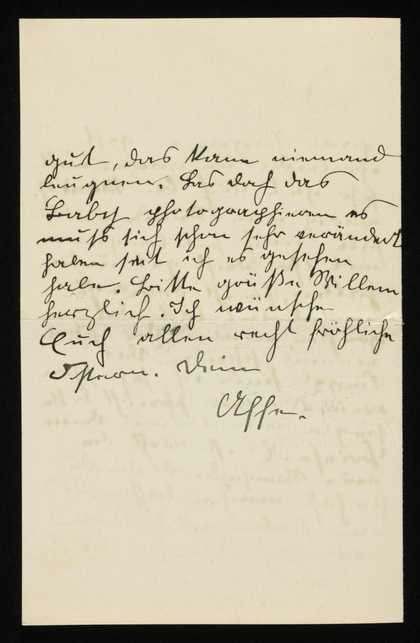 gut, das kann niemand
leugnen. Las doch das
Baby photographieren es
muss sich schon sehr verändert
haben seit ich es gesehen
habe. Bitte grüße Willem
herzlich. Ich wünsche
Euch allen recht fröhliche
Ostern. Dein
Affe.